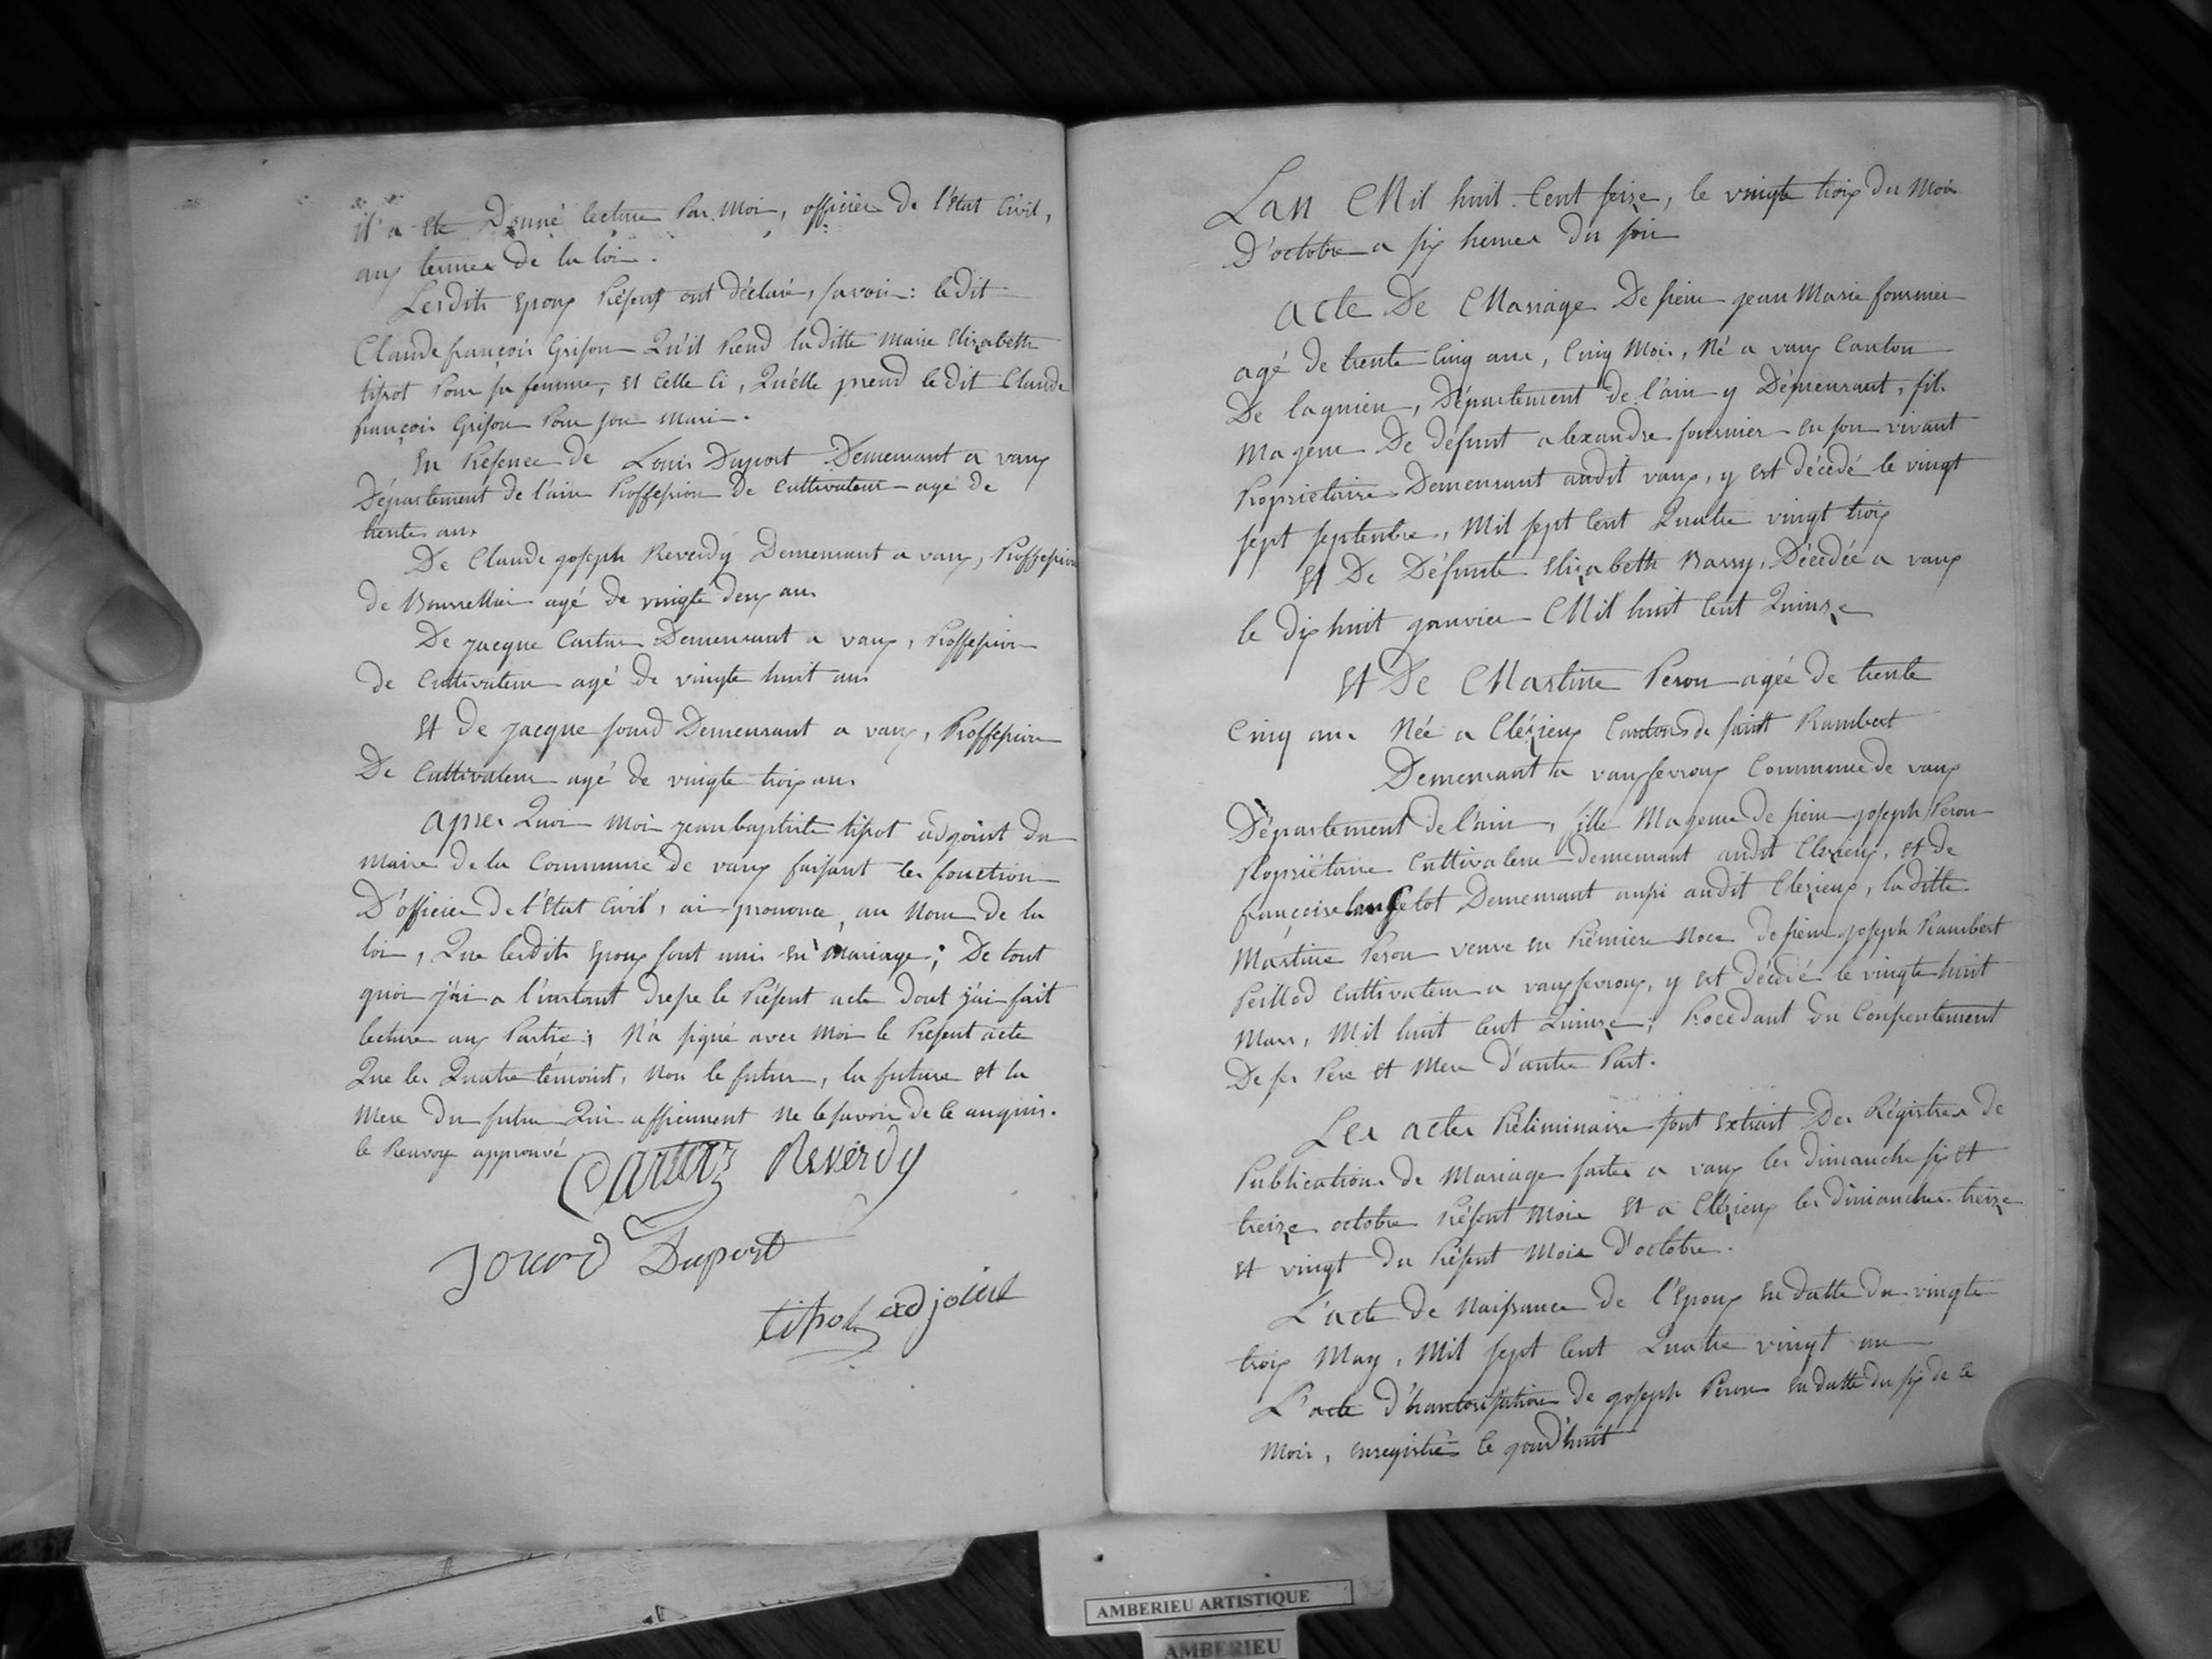 il a été Donné lecture Par Moi, officier de l'Etat Civil,
aux termes de la loi.
Lesdits Epoux Présent ont déclaré, savoir: ledit
Claude françois Grison Qu'il Prend laditte Marie Elizabeth
tissot Pour sa femme, et Celle Ci, Qu'elle prend le dit Claude
françois Grison Pour son Mari.
En Présence de Louis Dupont Demeurant a vaux
Département de l'ain Proffession De Cultivateur agé de
trente ans
De Claude joseph Reverdy Demeurant a vaux, Proffession
de Bourrellier agé de vingte deux ans
De jacque Cartan Demeurant a vaux, Proffession
de Cultivateur agé de vingte huit ans
Et de jacque Demeurant a vaux, Proffession
De Cultivateur agé de vingte trois ans
Apres Quoi Moi jean baptiste tissot adjoint du
Maire de la Commune de vaux faisant les fonction
D'officier de l'Etat Civil, ai prononcé, au Nom de la
loi, Que lesdits Epoux sont unis en Mariage; De tout
quoi j'ai a l'instant dressé le Présent acte dont j'ai fait
lecture aux Parties; N'a signé avec Moi le Présent acte
Que les Quatre témoint, Non le futur, la future et la
Mere du futur Qui affirment Ne le savoir de Ce anquis.
le Renvoy approuvé
Reverdy
Dupost
tissot adjoint
Lan Mil huit Cent seize, le vingte trois du Mois
D'octobre a six heures du soir
Acte De Mariage De sieur jean Marie fournier
agé de trente Cinq ans, Cinq Mois, Né a vaux Canton
De lagnieu, Département de l'ain y Démeurant, fils
Majeur De défunt alexandre fournier en son vivant
Propriétaire Demeurant audit vaux, y est décédé le vingt
sept septembre, Mil sept Cent Quatre vingt trois
Et De Défunte Elizabeth Barry, Décedée a vaux
le dix huit janvier Mil huit Cent Quinze
Et De Martine Peron agée de trente
Cinq ans Née a Clézieux Canton de saint Rambert
Demeurant a vauxfevroux Commune de vaux
Département de l'ain, fille Majeure de sieur joseph Peron
Propriétaire Cultivateur demeurant audit Clezieux, et de
françoise Demeurant aussi audit Clezieux, laditte
Martine Peron veuve en Prémiere Noces de sieur joseph Rambert
Perllod Cultivateur a vauxfevroux, y est décédé le vingte huit
Mars, Mil huit Cent Quinze; Procédant du Consentement
De ses Pere et Mere D'autre Part.
Les actes Préliminaire sont Extrait Des Régistres de
Publications de Mariage faites a vaux les dimanche six et
treize octobre Présent Mois Et a Clézieux les dimanches treize
et vingt du Présent Mois D'octobre.
L'acte de Naissance de l'Epoux en datte du vingte
trois May, Mil sept Cent Quatre vingt un
L'acte d'hautorisation de joseph Peron en datte du six de Ce
Mois, enregistré Ce jourd'huit
AMBERIEU ARTISTIQUE
AMBERIEU